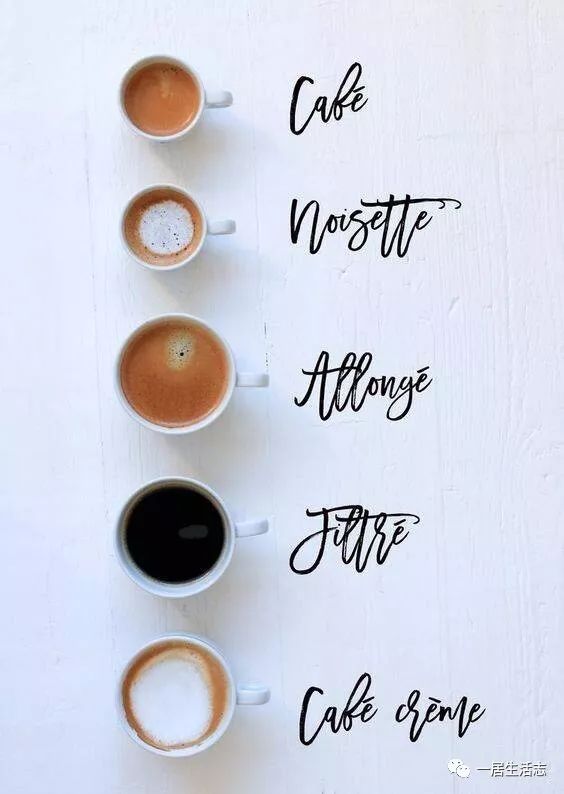 Café
Noisette
Allongé
Filtré
Café crème
一居生活志